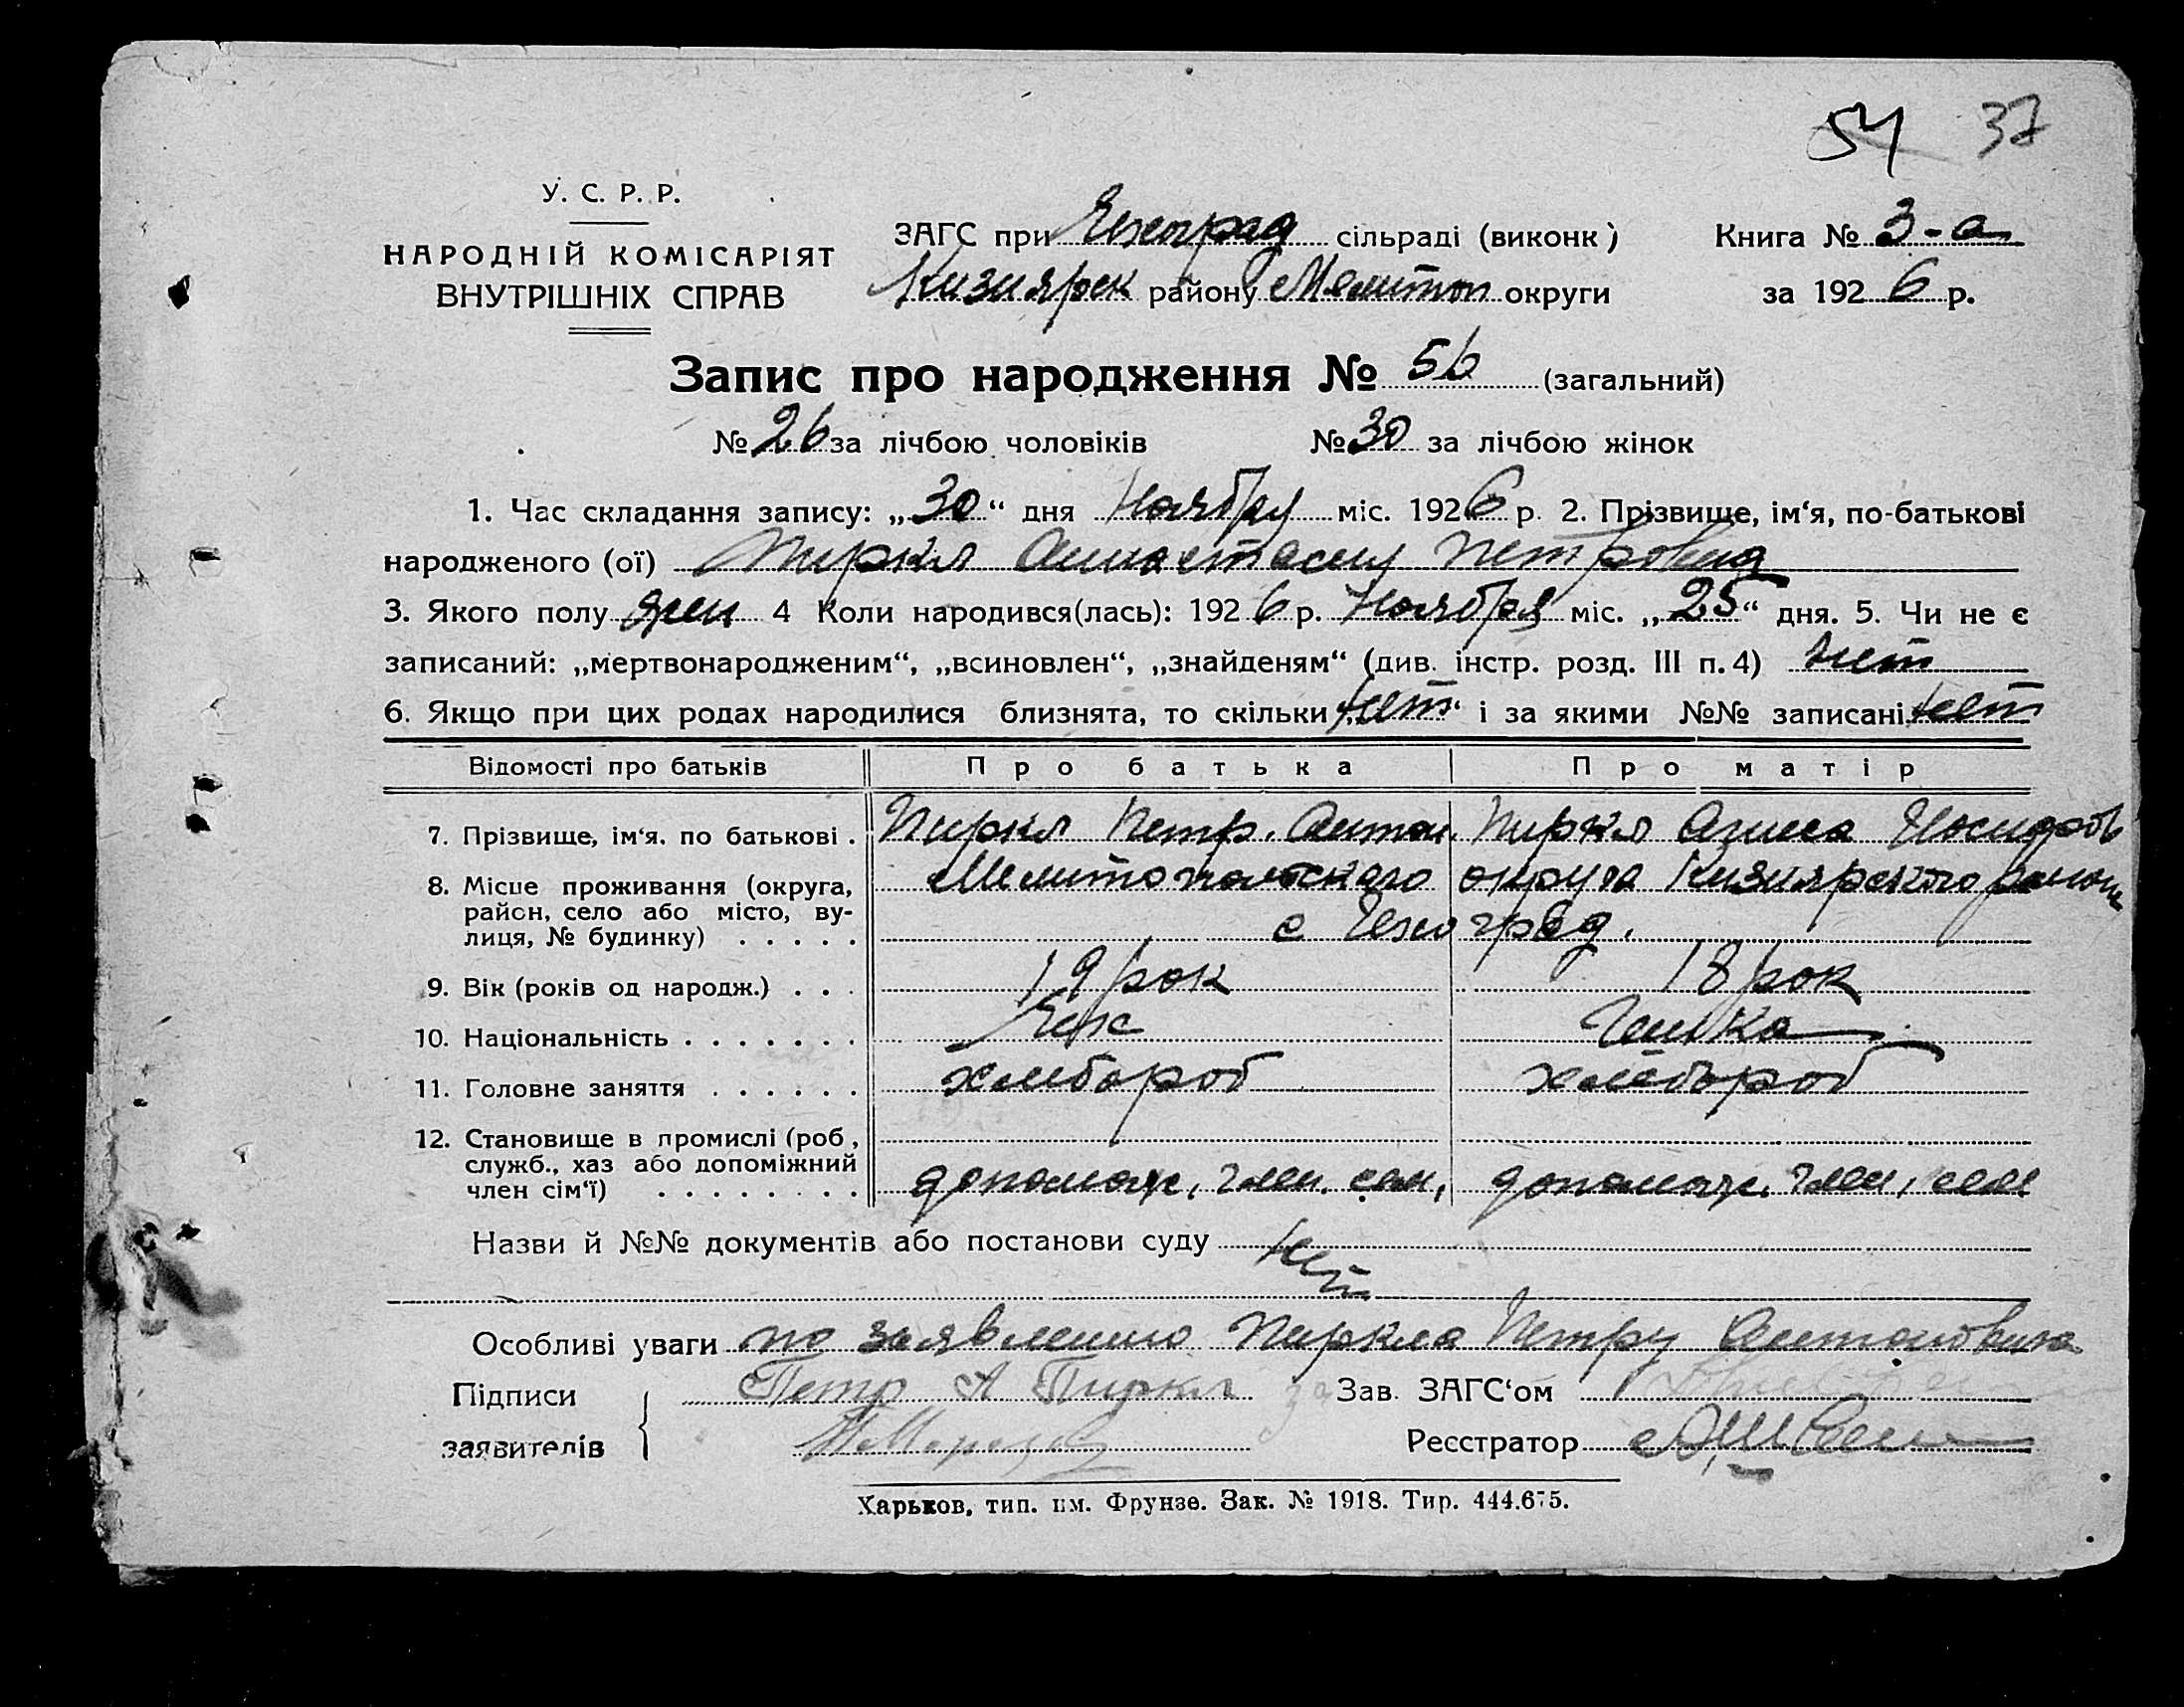 54 37
У. С. Р. Р.
НАРОДНІЙ КОМІСАРІЯТ
ВНУТРІШНІХ СПРАВ
ЗАГС при Чехоград сільраді (виконк)
Кизиярск району Мелитоп округи
Книга № 3-а
за 1926 р.
Запис про народження № 56 (загальний)
№ 26 за лічбою чоловіків № 30 за лічбою жінок
1. Час складання запису: „30“ дня Ноябру міс. 1926 р. 2. Прізвище, ім‘я, по-батькові
народженого (ої) Пиркл Анастасия Петровна
3. Якого полу жен 4 Коли народився(лась): 1926 р. Ноября міс. „25“ дня. 5. Чи не є
записаний: „мертвонародженим“, „всиновлен“, „знайденям“ (див. інстр. розд. III п. 4) нет
6. Якщо при цих родах народилися близнята, то скільки нет і за якими №№ записані нет
Відомості про батьків Про батька Про матір
7. Прізвище, ім‘я. по батькові . Пиркл Петр. Антон. Пиркл Агнеса Иосифов
8. Місце проживання (округа, Мелитопольского округа Кизиярского района
район, село або місто, ву-
лиця, № будинку) . . . . . с Чехоград.
9. Вік (років од народж.) . . . 19 рок 18 рок
10. Національність . . . . . . . Чех Чешка
11. Головне заняття . . . . . . хлебороб хлебороб
12. Становище в промислі (роб,
служб., хаз або допоміжний
член сім‘ї) . . . . . . . . допомож. член. сем, допомож. член, сем
Назви й №№ документів або постанови суду нет
Особливі уваги по заявлению Пиркла Петру Антоновича
Підписи Петр А Пиркл Зав. ЗАГС‘ом
заявителів Реєстратор
Харьков, тип. им. Фрунзе. Зак. № 1918. Тир. 444.675.